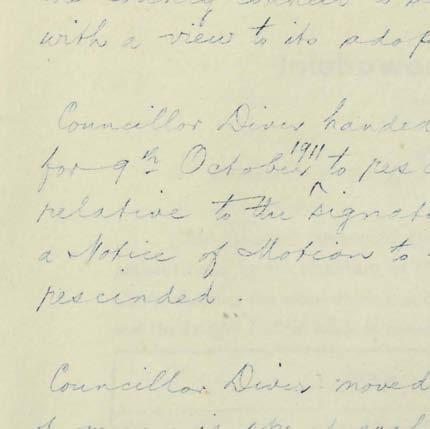 with a view to its adop
Councillor Diver handed
for 9th October 1911 to res
relative to the signat
a Notice of Motion to
rescinded.
Councillor Diver moved